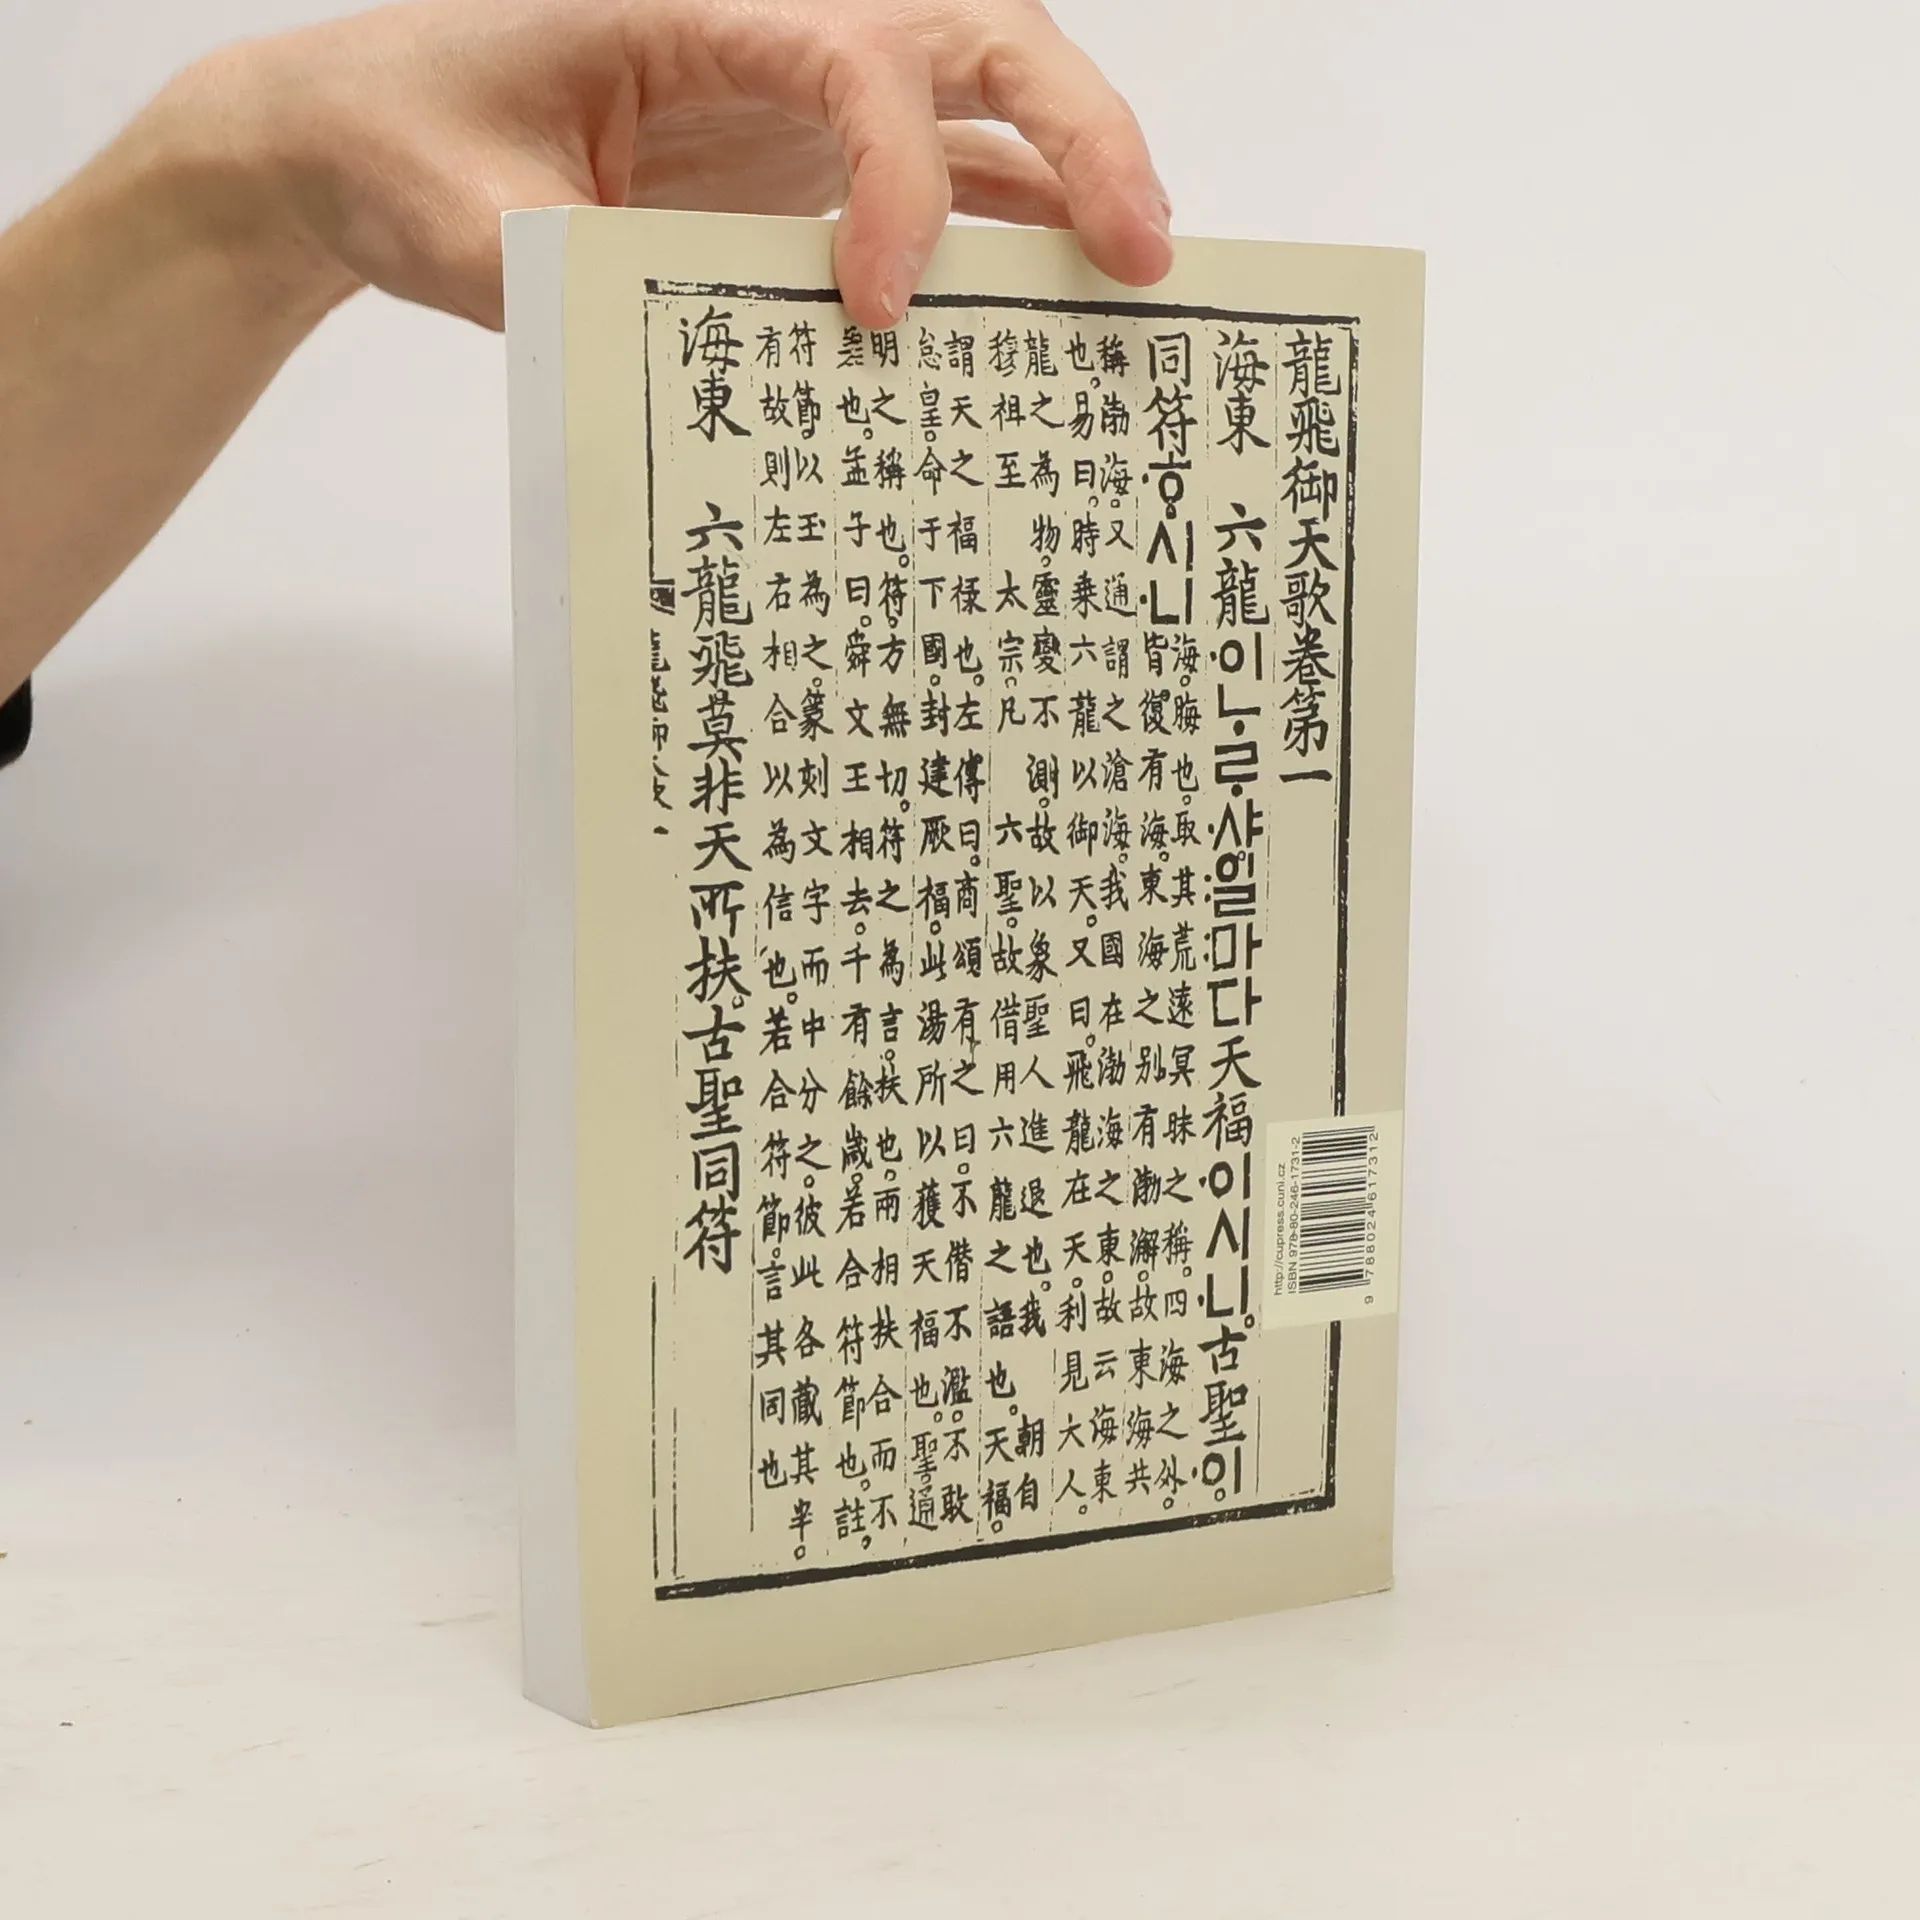 龍飛御天歌卷第一
海東 六龍·이ᄂᆞᄅᆞ·샤:일:마다天福·이시·니。古聖·이
同符·ᄒᆞ시·니
海。晦也。取其荒遠冥昧之稱。四海之外。
皆復有海。東海之別有渤澥。故東海共
稱渤海。又通謂之滄海。我國在渤海之東。故云海東
也。易曰。時乗六龍以御天。又曰。飛龍在天。利見大人。
龍之為物。靈變不測。故以象聖人進退也。我 朝自
穆祖至 太宗。凡 六聖。故借用六龍之語也。天福。
謂天之福祿也。左傳曰。商頌有之曰。不僭不濫。不敢
怠皇。命于下國。封建厥福。此湯所以獲天福也。聖。通
明之稱也。符。方無切。符之為言。扶也。兩相扶合而不
也。孟子曰。舜文王相去。千有餘歲。若合符節也。註。
符節。以玉為之。篆刻文字而中分之。彼此各藏其半。
有故則左右相合以為信也。若合符節。言其同也
海東 六龍飛莫非天所扶。古聖同符
http://cupress.cuni.cz
ISBN 978-80-246-1731-2
9 788024 617312